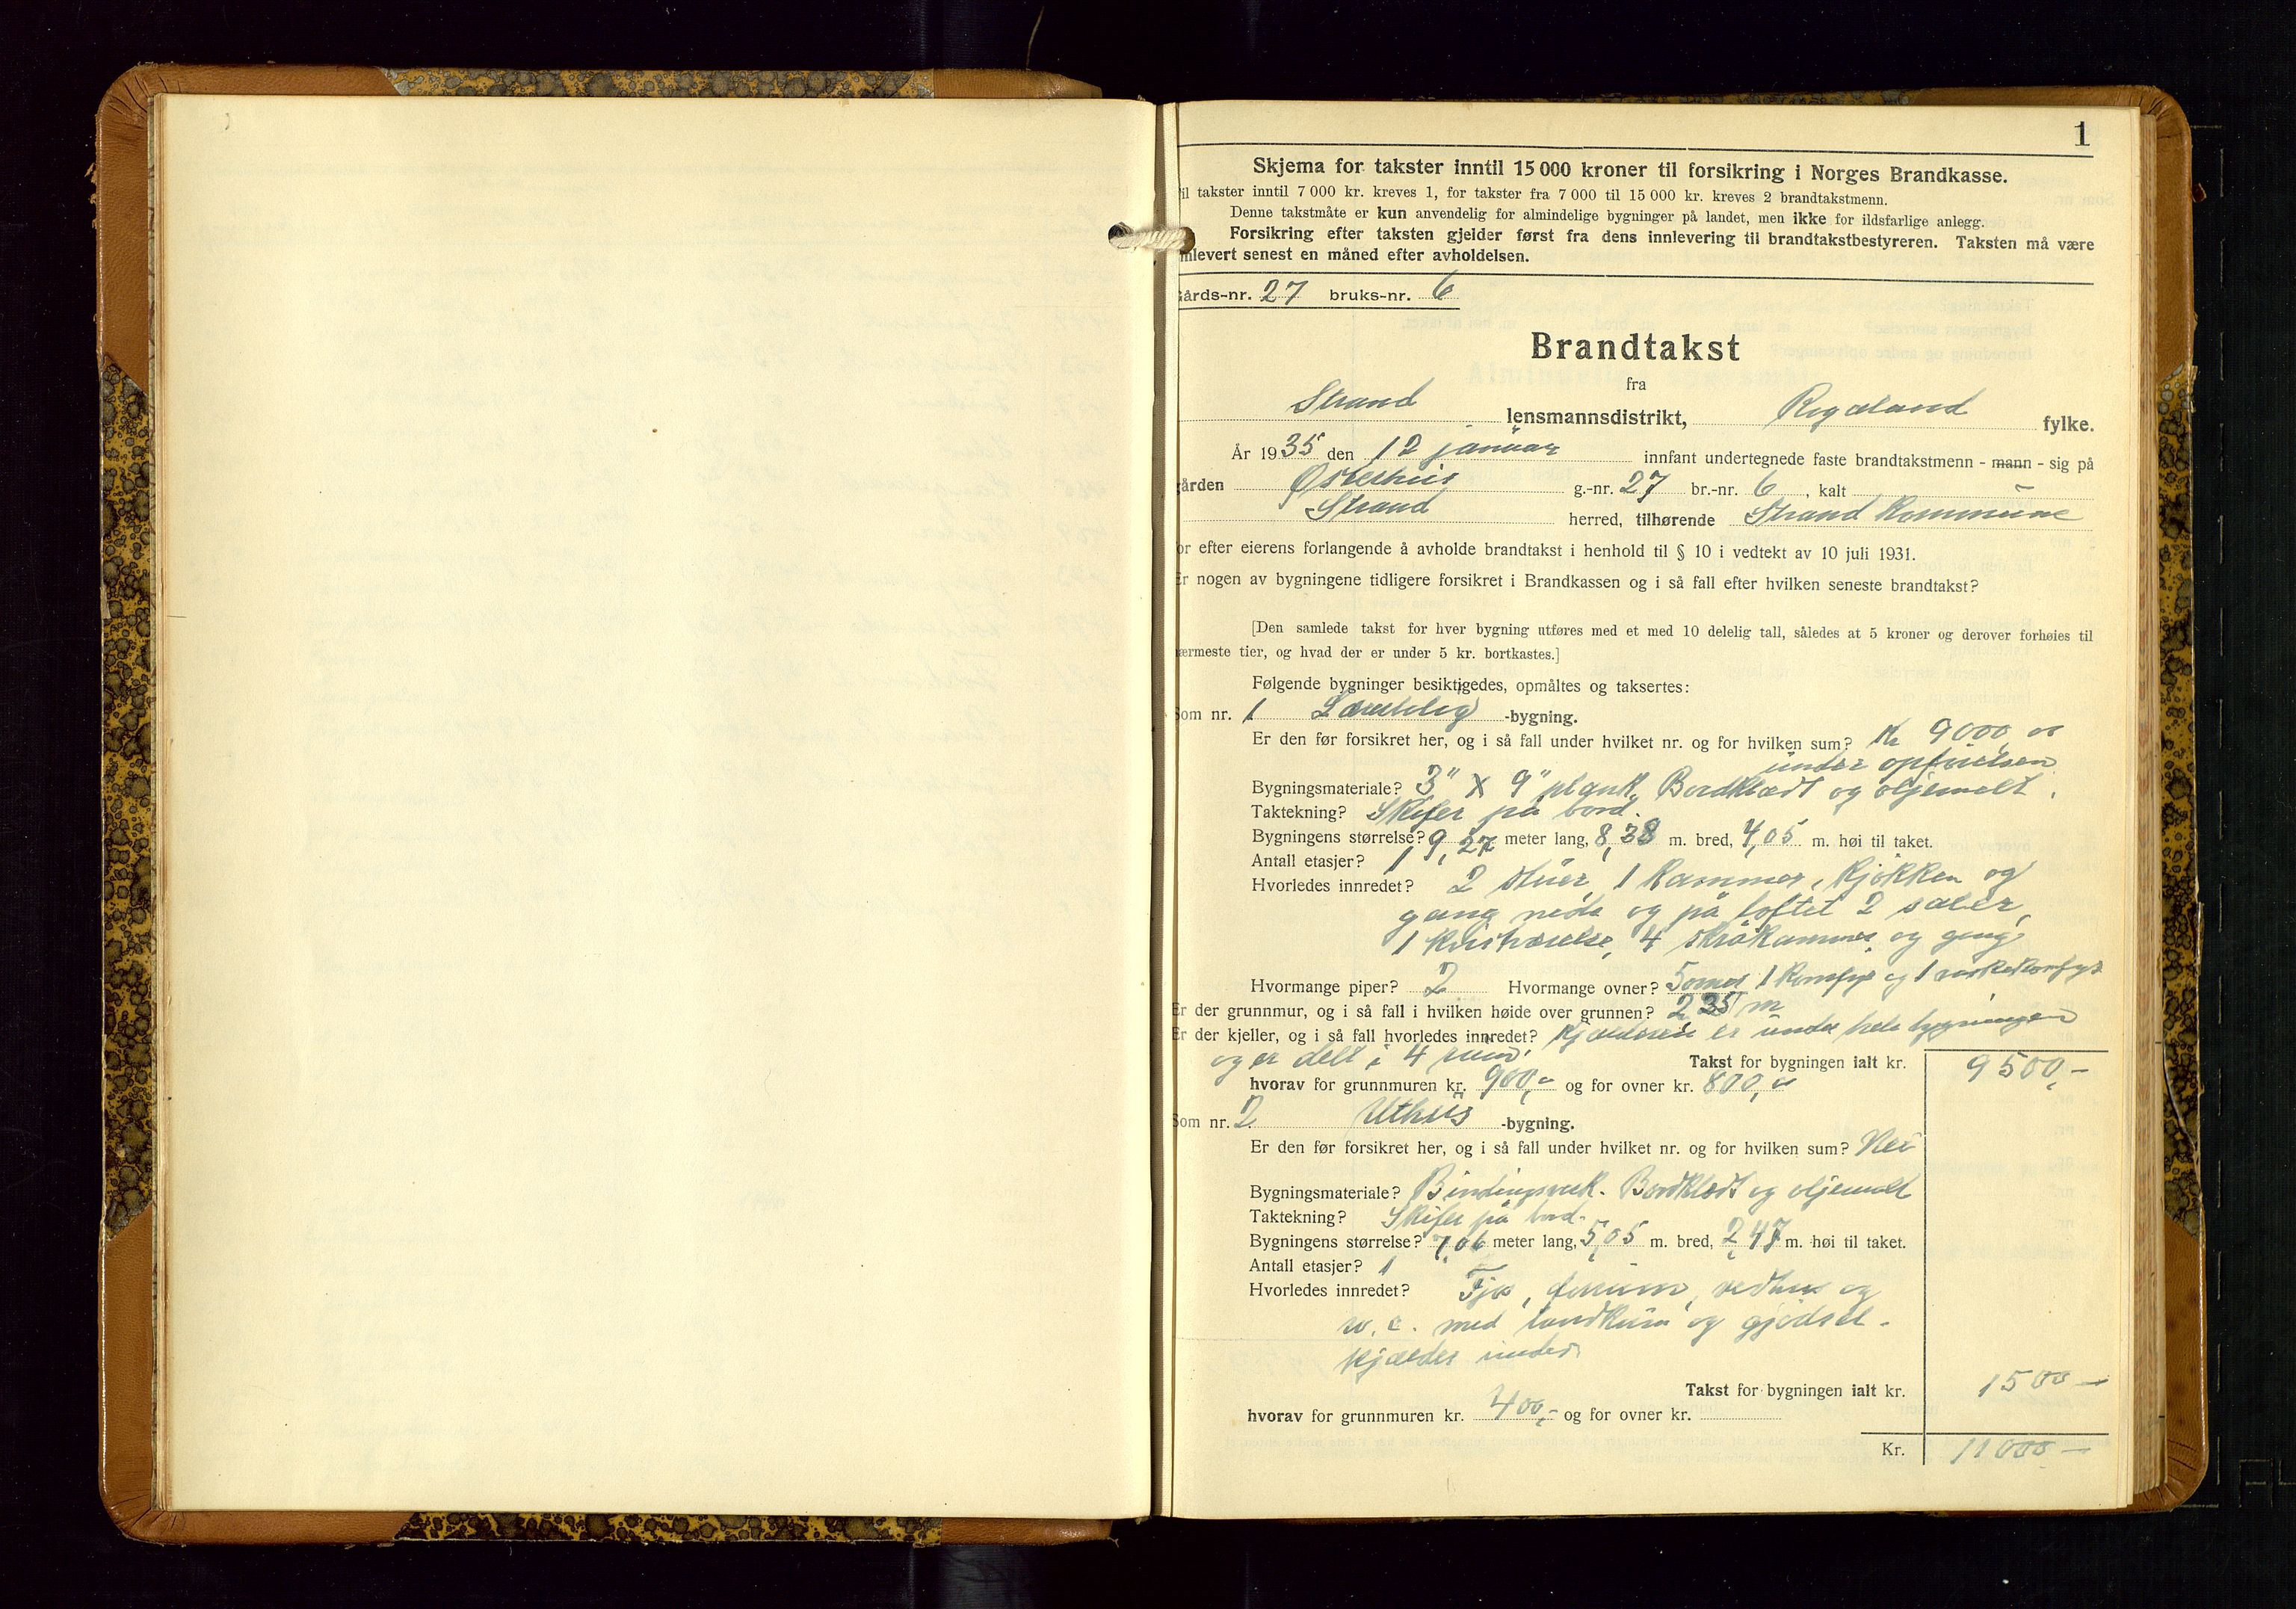 1
Skjema for takster inntil 15 000 kroner til forsikring i Norges Brandkasse.
il takster inntil 7 000 kr. kreves 1, for takster fra 7 000 til 15 000 kr. kreves 2 brandtakstmenn.
Denne takstmåte er kun anvendelig for almindelige bygninger på landet, men ikke for ildsfarlige anlegg.
Forsikring efter taksten gjelder først fra dens innlevering til brandtakstbestyreren. Taksten må være
nnlevert senest en måned efter avholdelsen.
Gårds-nr. 27 bruks-nr. 6
Brandtakst
fra
Strand lensmannsdistrikt, Rogaland fylke.
År 1935 den 12 januar innfant undertegnede faste brandtakstmenn - mann - sig på
gården Østerhus g.-nr. 27 br.-nr. 6, kalt -
Strand herred, tilhørende Strand Kommune
or efter eierens forlangende å avholde brandtakst i henhold til § 10 i vedtekt av 10 juli 1931.
Er nogen av bygningene tidligere forsikret i Brandkassen og i så fall efter hvilken seneste brandtakst?
[Den samlede takst for hver bygning utføres med et med 10 delelig tall, således at 5 kroner og derover forhøies til
ærmeste tier, og hvad der er under 5 kr. bortkastes.]
Følgende bygninger besiktigedes, opmåltes og taksertes:
Som nr. 1 -bygning.
Er den før forsikret her, og i så fall under hvilket nr. og for hvilken sum? Kr 9000,00
under opførelsen
Bygningsmateriale? 3" x 9" plank. Bordklædt og oljemalt.
Taktekning? Skifer på bord.
Bygningens størrelse? 9,27 meter lang, 8,38 m. bred, 4,05 m. høi til taket.
Antall etasjer? 1
Hvorledes innredet? 2 stuer, 1 kammer, kjøkken og
gang nede og på loftet 2 saler,
1 kvistværelse, 4 skråkammer og gang
Hvormange piper? 2 Hvormange ovner? 5 1 komfyr og 1
Er der grunnmur, og i så fall i hvilken høide over grunnen? 2,35 m
Er der kjeller, og i så fall hvorledes innredet? Kjælderen er under hele bygningen
og er delt i 4 rum. Takst for bygningen ialt kr. 9500,-
hvorav for grunnmuren kr. 900,- og for ovner kr. 800,-
Som nr. 2 Uthus -bygning.
Er den før forsikret her, og i så fall under hvilket nr. og for hvilken sum? Nei
Bygningsmateriale? Bindingsverk. Bordklædt og oljemalt
Taktekning? Skifer på bord.
Bygningens størrelse? 7,06 meter lang, 5,05 m. bred, 2,47 m. høi til taket.
Antall etasjer? 1
Hvorledes innredet? Fjøs, forrum, vedhus og
w.c. med landkum og gjødsel-
kjælder under
Takst for bygningen ialt kr. 1500-
hvorav for grunnmuren kr. 400,- og for ovner kr.
Kr. 11000-